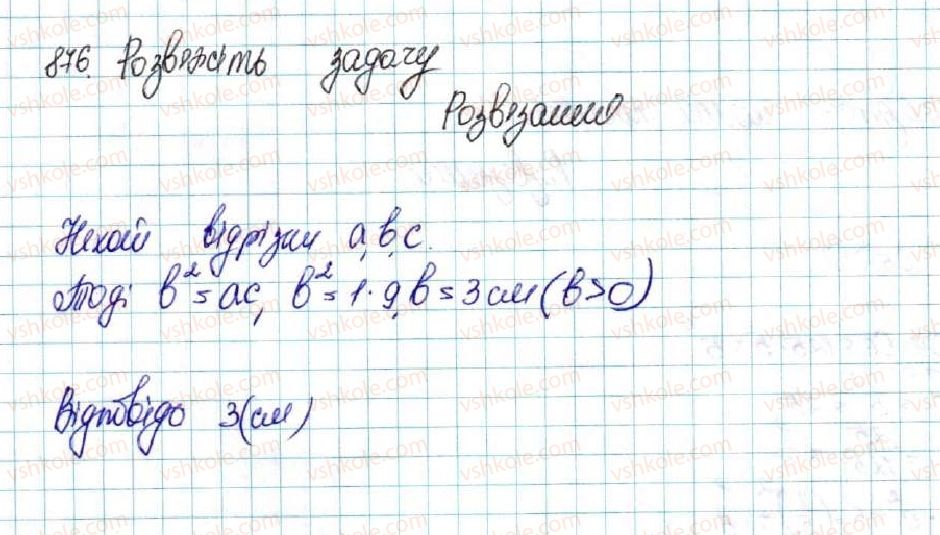 876. Розв'яжіть задачу
Розв'язання
Нехай відрізки a, b, c.
Тоді b² = ac, b² = 1·9, b = 3 см (b>0)
Відповідь 3(см)